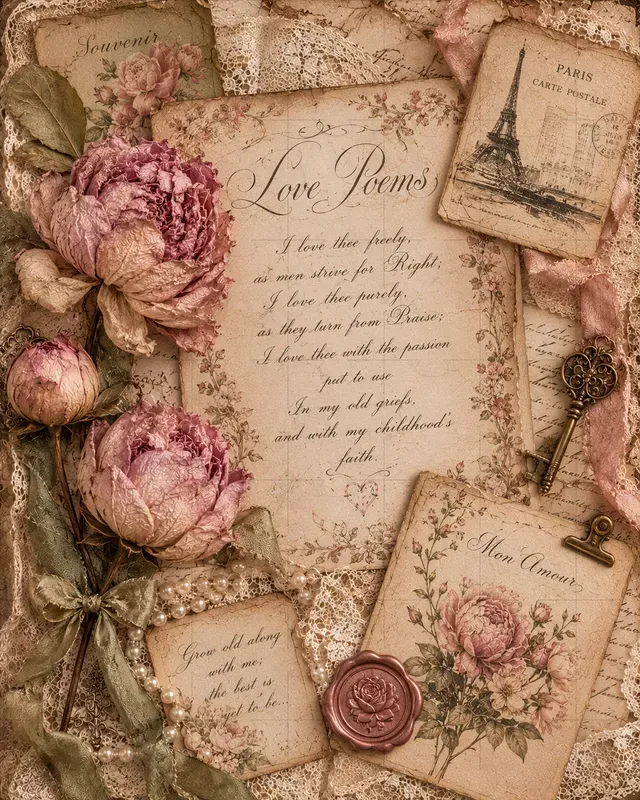 Souvenir
PARIS
CARTE POSTALE
Love Poems
I love thee freely,
as men strive for Right;
I love thee purely,
as they turn from Praise;
I love thee with the passion
put to use
In my old griefs,
and with my childhood's
faith.
Mon Amour
Grow old along
with me;
the best is
yet to be...